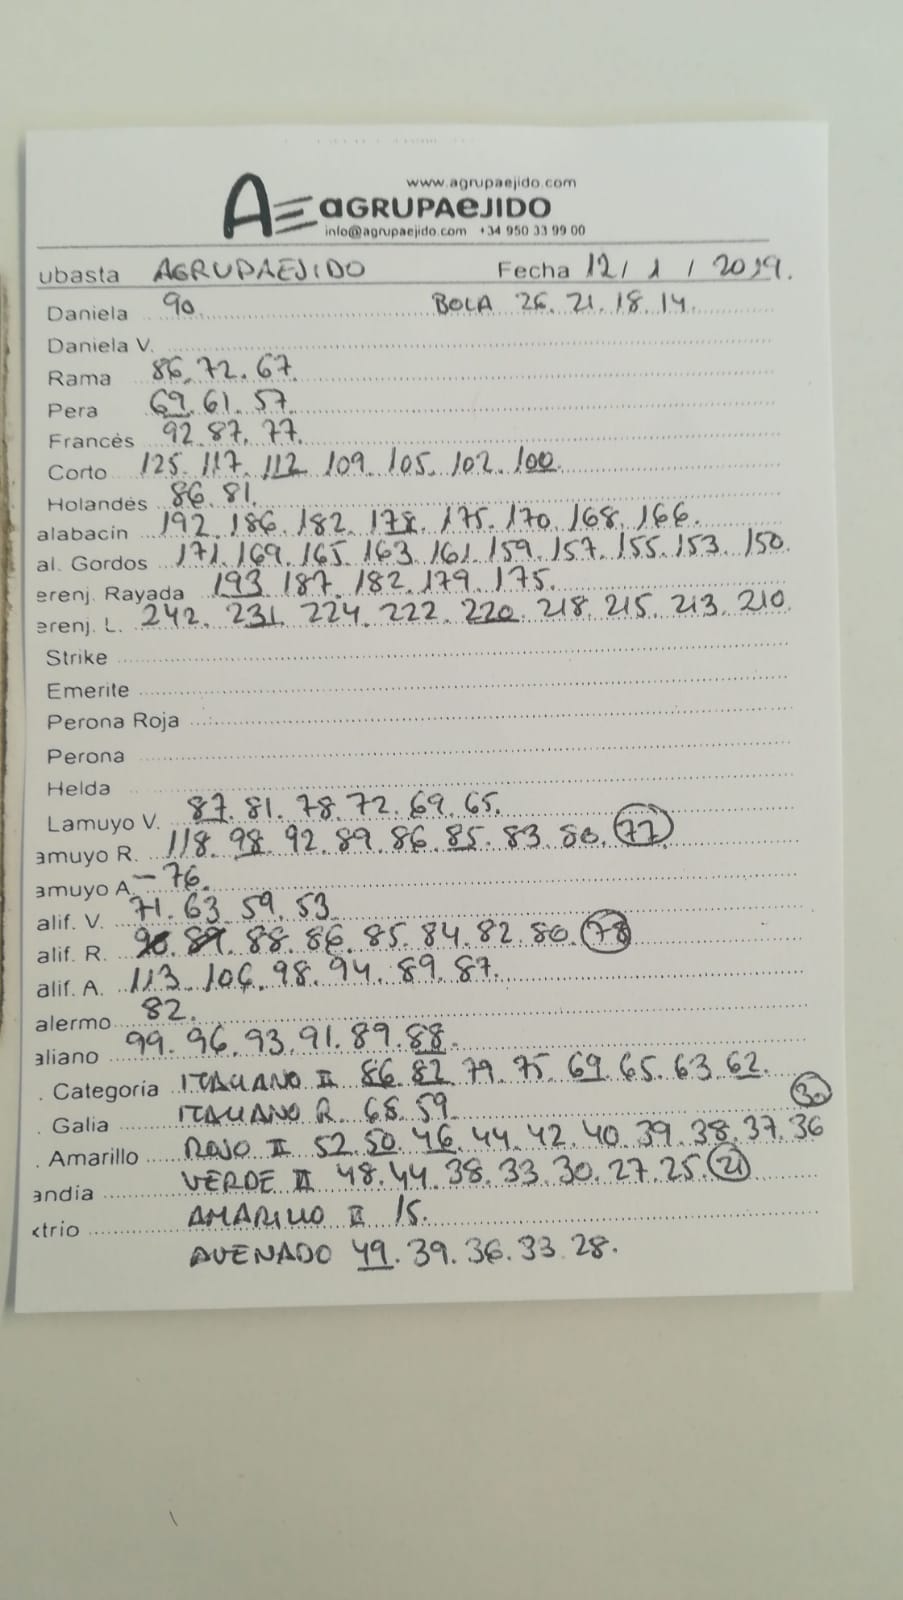 www.agrupaejido.com
AE AGRUPAEJIDO
info@agrupaejido.com +34 950 33 99 00
ubasta AGRUPAEJIDO Fecha 12/1/2019.
Daniela 90 BOLA 26. 21. 18. 14.
Daniela V.
Rama 86. 72. 67.
Pera 69. 61. 57.
Francés 92. 87. 77.
Corto 125. 117. 112 109. 105. 102. 100.
Holandés 86. 81.
alabacín 192. 186. 182. 178. 175. 170. 168. 166.
al. Gordos 171. 169. 165. 163. 161. 159. 157. 155. 153. 150.
erenj. Rayada 193 187. 182. 179. 175.
erenj. L. 242. 231. 224. 222. 220. 218. 215. 213. 210.
Strike
Emerite
Perona Roja
Perona
Helda
Lamuyo V. 87. 81. 78. 72. 69. 65.
amuyo R. 118. 98. 92. 89. 86. 85. 83. 80. 77
amuyo A. - 76.
alif. V. 71. 63. 59. 53.
alif. R. 90. 89. 88. 86. 85. 84. 82. 80. 78
alif. A. 113. 106. 98. 94. 89. 87.
alermo 82.
aliano 99. 96. 93. 91. 89. 88.
. Categoría ITALIANO II 86. 82. 79. 75. 69. 65. 63. 62.
. Galia ITALIANO R. 68. 59. 30
. Amarillo ROJO II 52. 50. 46. 44. 42. 40. 39. 38. 37. 36
andia VERDE II 48. 44. 38. 33. 30. 27. 25. 21
xtrio AMARILLO II 15.
AVENADO 49. 39. 36. 33. 28.